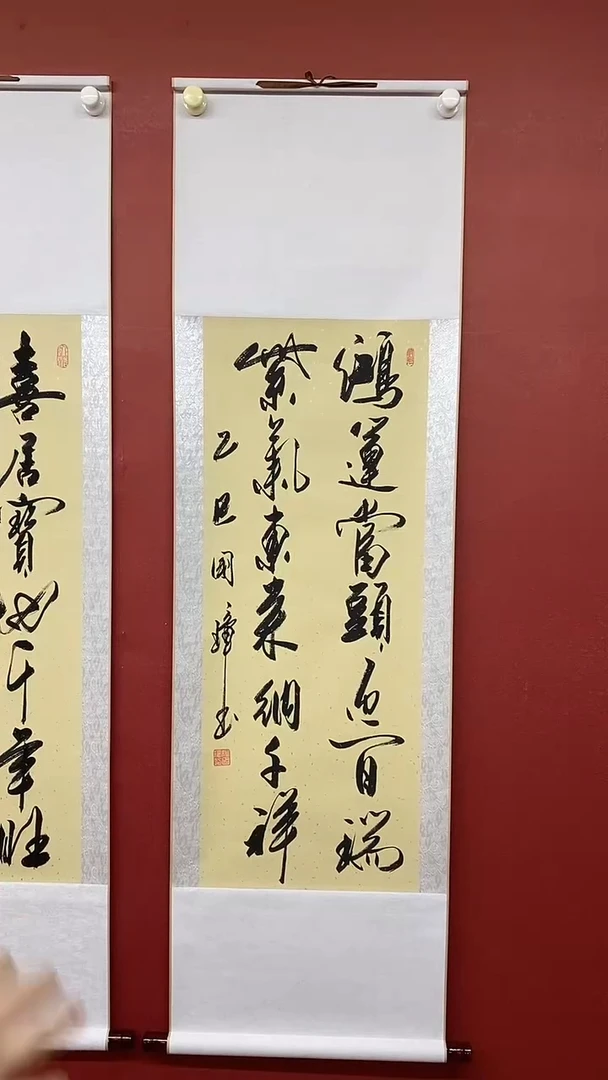 鴻運當頭迎百瑞
紫氣東來納千祥
乙巳國璋书
喜居寶地千年旺